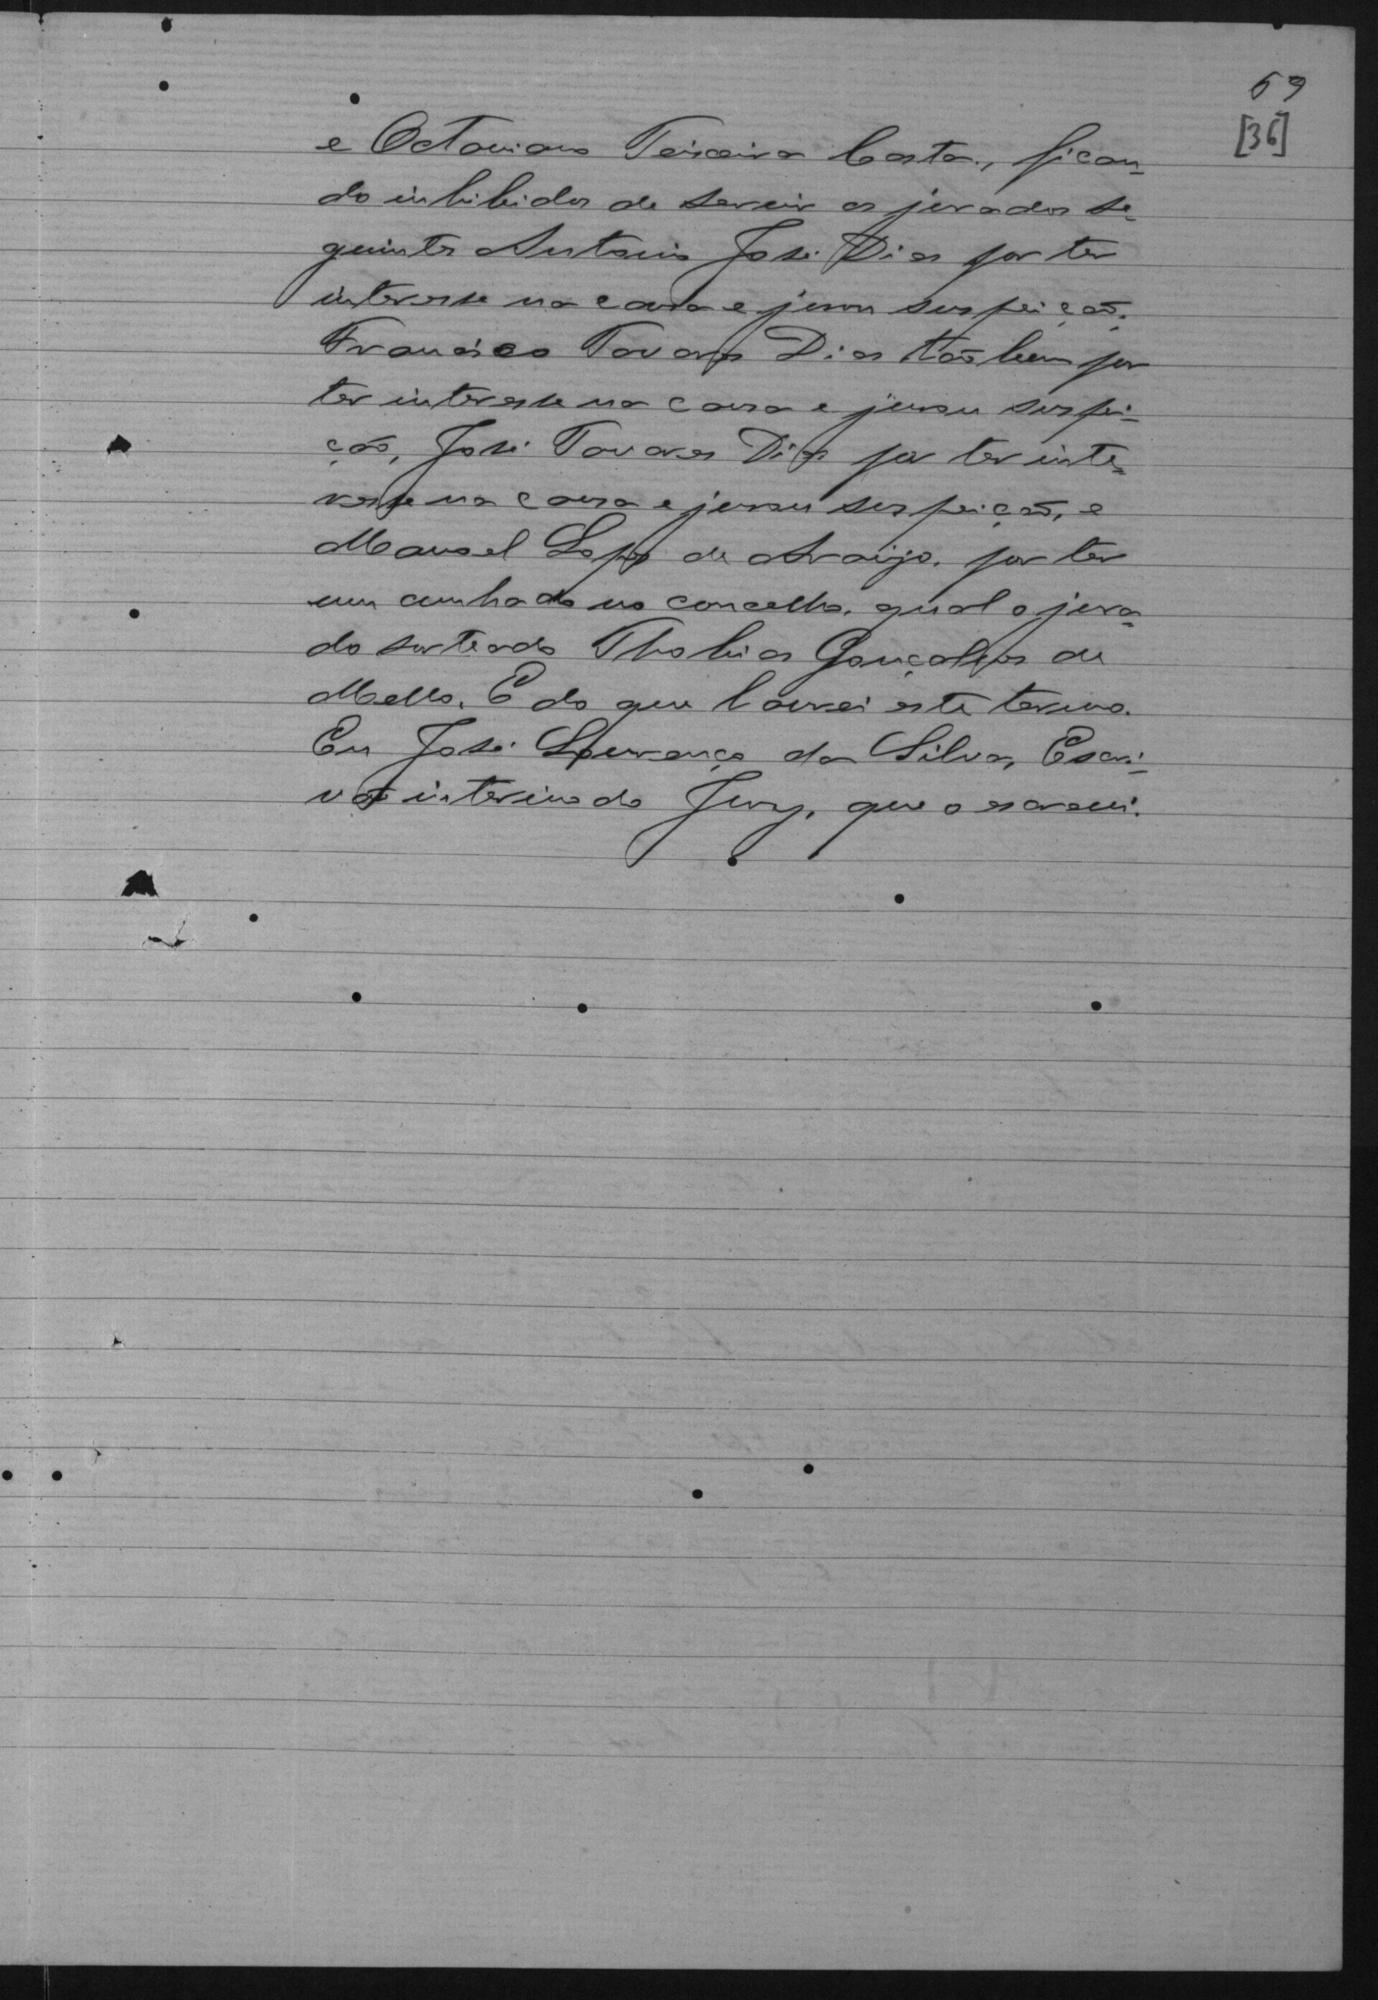 59
[36]
e Octaviano Teixeira Costa, fican-
do inhibidos de servir os jurados se-
guintes Antonio José Dias por ter
interesse na causa e jurou suspeição.
Francisco Tavares Dias tão bem por
ter interesse na causa e jurou suspei-
ção, José Tavares Dias por ter inte-
resse na causa e jurou suspeição, e
Manoel Lopes de Araujo, por ter
um cunhado no concelho, qual o jura-
do sorteado Thobias Gonçalves de
Mello. E do que lavrei este termo.
Eu José Lourenço da Silva, Escri-
vão interino do Jury, que o escrevi.